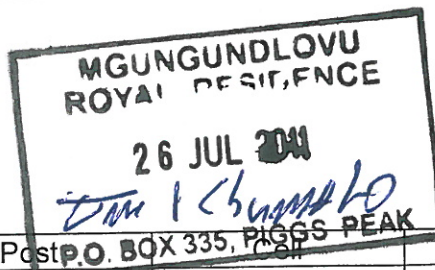 MGUNGUNDLOVU
ROYAL RESIDENCE
26 JUL
Post P.O. BOX 335, PIGGS PEAK
Cell